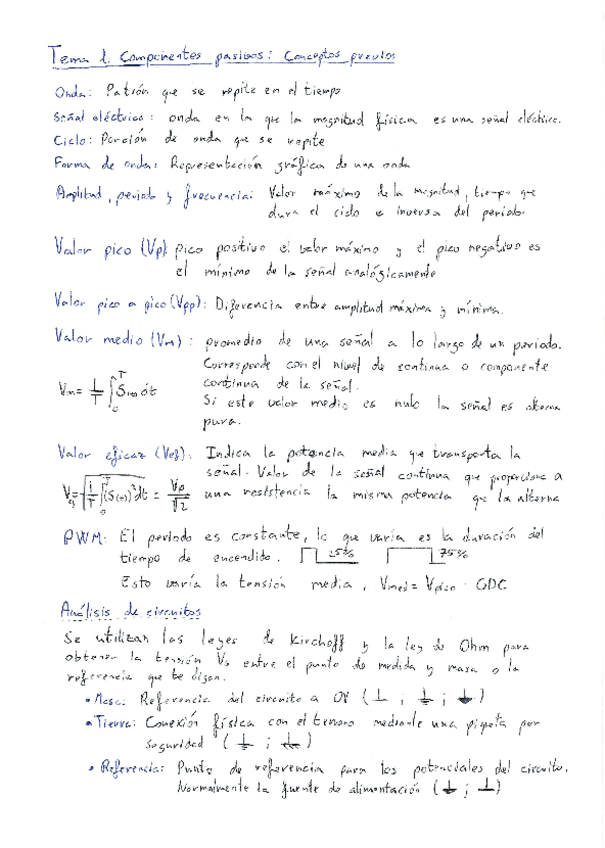 Tema 1. Componentes pasivos: Conceptos previos
Onda: Patrón que se repite en el tiempo
Señal eléctrica: onda en la que la magnitud física es una señal eléctrica.
Ciclo: Porción de onda que se repite
Forma de onda: Representación gráfica de una onda
Amplitud, periodo y frecuencia: Valor máximo de la magnitud, tiempo que
dura el ciclo e inversa del periodo.
Valor pico (Vp) pico positivo el valor máximo y el pico negativo es
el mínimo de la señal analógicamente
Valor pico a pico (Vpp): Diferencia entre amplitud máxima y mínima.
Valor medio (Vm): promedio de una señal a lo largo de un periodo.
Corresponde con el nivel de continua o componente
Vm = 1/T ∫₀ᵀ S(t) dt continua de la señal.
Si este valor medio es nulo la señal es alterna
pura.
Valor eficaz (Vef): Indica la potencia media que transporta la
señal. Valor de la señal continua que proporciona a
Vef = √(1/T ∫₀ᵀ (S(t))² dt) = Vp/√2 una resistencia la misma potencia que la alterna
PWM: El periodo es constante, lo que varía es la duración del
tiempo de encendido. 25% 75%
Esto varía la tensión media, Vmed = Vpico · CDC
Análisis de circuitos
Se utilizan las leyes de Kirchoff y la ley de Ohm para
obtener la tensión Vs entre el punto de medida y masa o la
referencia que te digan.
• Masa: Referencia del circuito a 0V ( ; ; )
• Tierra: Conexión física con el terreno mediante una piqueta por
seguridad ( ; )
• Referencia: Punto de referencia para los potenciales del circuito.
Normalmente la fuente de alimentación ( ; )